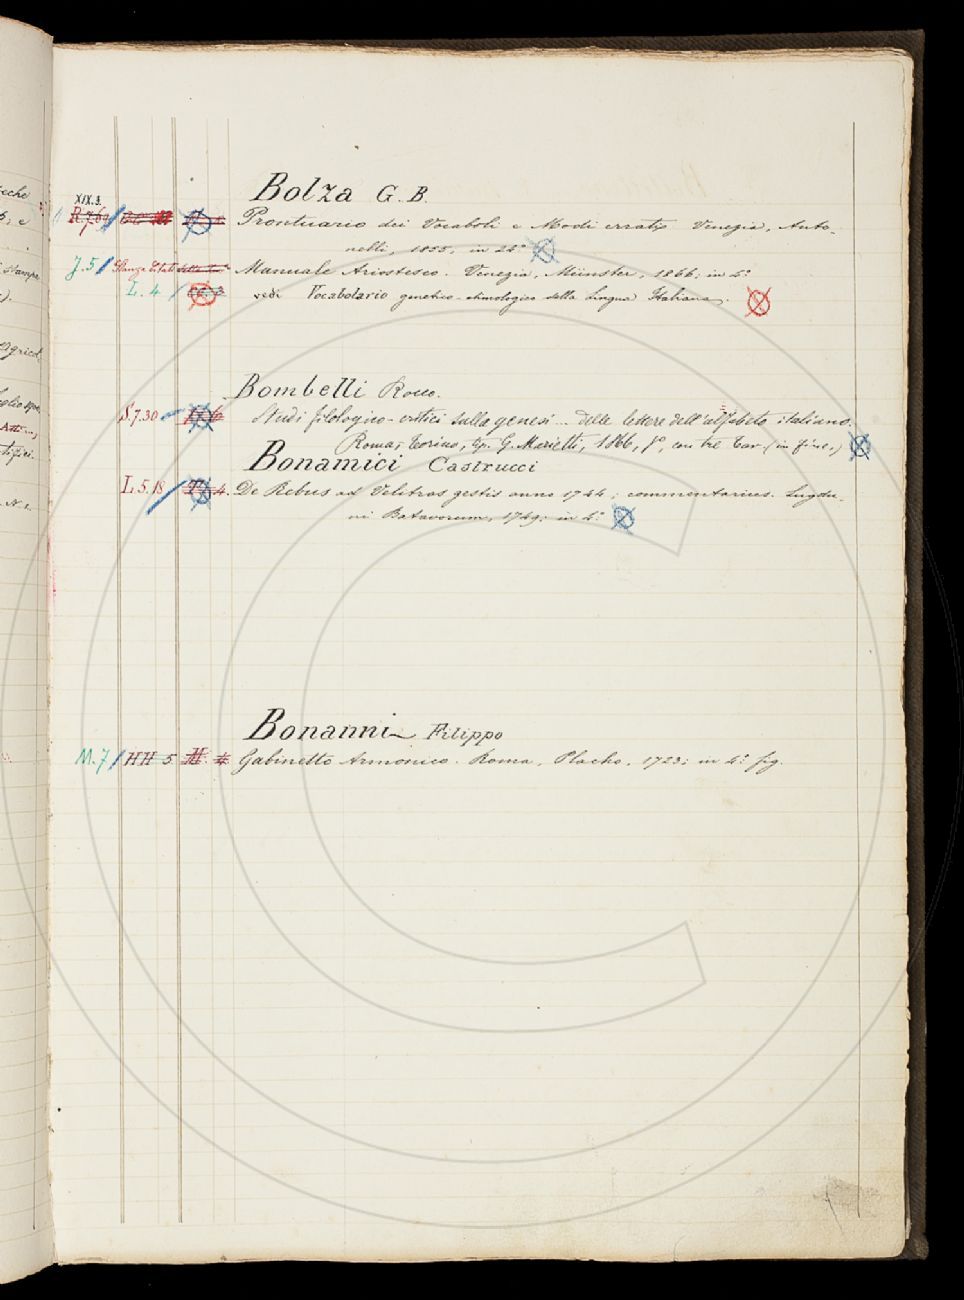 Bolza G. B.
XIX.3.
R.7.69 Prontuario dei Vocaboli e Modi errati. Venezia, Anto-
nelli, 1855, in 24.°
J.5 Stanza Citati Manuale Ariostesco. Venezia, Münster, 1866; in 4.°
L. 4 vedi Vocabolario genetico-etimologico della Lingua Italiana.
Bombelli Rocco.
S.7.30 Studi filologico-critici sulla genesi ... delle lettere dell'alfabeto italiano.
Roma, Torino, tip. G. Marietti, 1866, 8°, con tre tav. (in fine.)
Bonamici Castrucci
L 5.18 4. De Rebus ad Velitras gestis anno 1744; commentarius. Lugdu-
ni Batavorum, 1749; in 4.°
Bonanni Filippo
M. 7 HH 5 H. 4 Gabinetto Armonico. Roma, Placho, 1723; in 4.° fig.
eche
; e
stampe
Agricol
tifici.
N. 1.